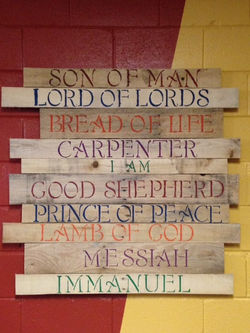 SON OF MAN
LORD OF LORDS
BREAD OF LIFE
CARPENTER
I AM
GOOD SHEPHERD
PRINCE OF PEACE
LAMB OF GOD
MESSIAH
IMMANUEL